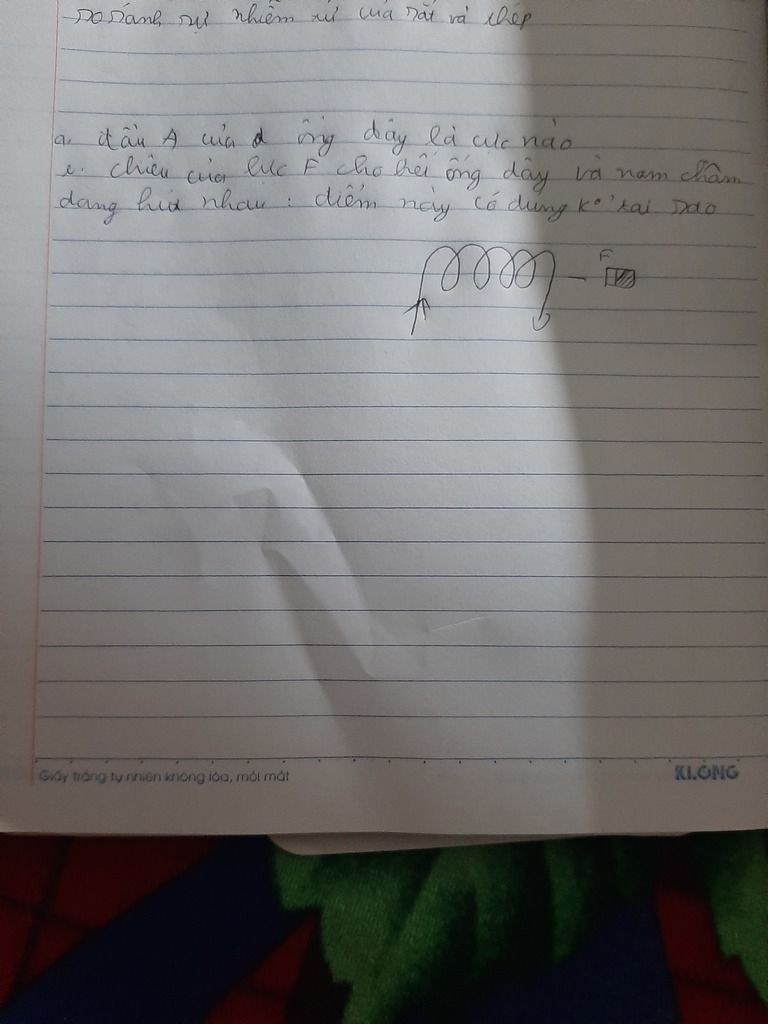 So sánh sự nhiễm từ của sắt và thép
a. đầu A của ống dây là cực nào
c. chiều của lực F cho biết ống dây và nam châm
đang hút nhau : điểm này có dúng ko tại sao
F
Giấy trắng tự nhiên không lóa, mỏi mắt
KLONG